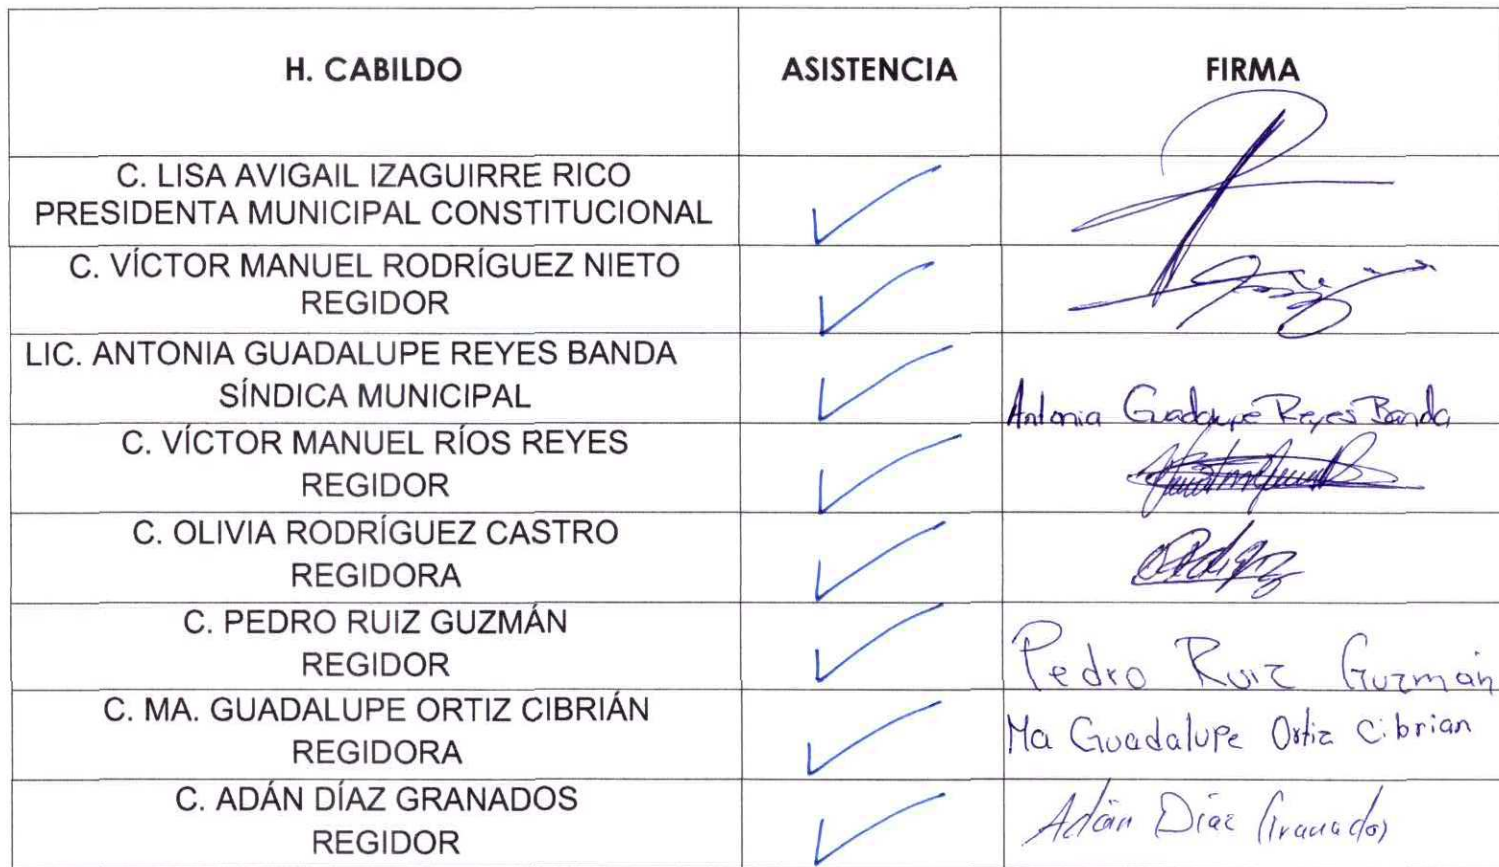 H. CABILDO ASISTENCIA FIRMA
C. LISA AVIGAIL IZAGUIRRE RICO
PRESIDENTA MUNICIPAL CONSTITUCIONAL
C. VÍCTOR MANUEL RODRÍGUEZ NIETO
REGIDOR
LIC. ANTONIA GUADALUPE REYES BANDA
SÍNDICA MUNICIPAL
Antonia Guadalupe Reyes Banda
C. VÍCTOR MANUEL RÍOS REYES
REGIDOR
C. OLIVIA RODRÍGUEZ CASTRO
REGIDORA
C. PEDRO RUIZ GUZMÁN
REGIDOR
Pedro Ruiz Guzmán
C. MA. GUADALUPE ORTIZ CIBRIÁN
REGIDORA
Ma Guadalupe Ortiz Cibrian
C. ADÁN DÍAZ GRANADOS
REGIDOR
Adán Díaz Granados